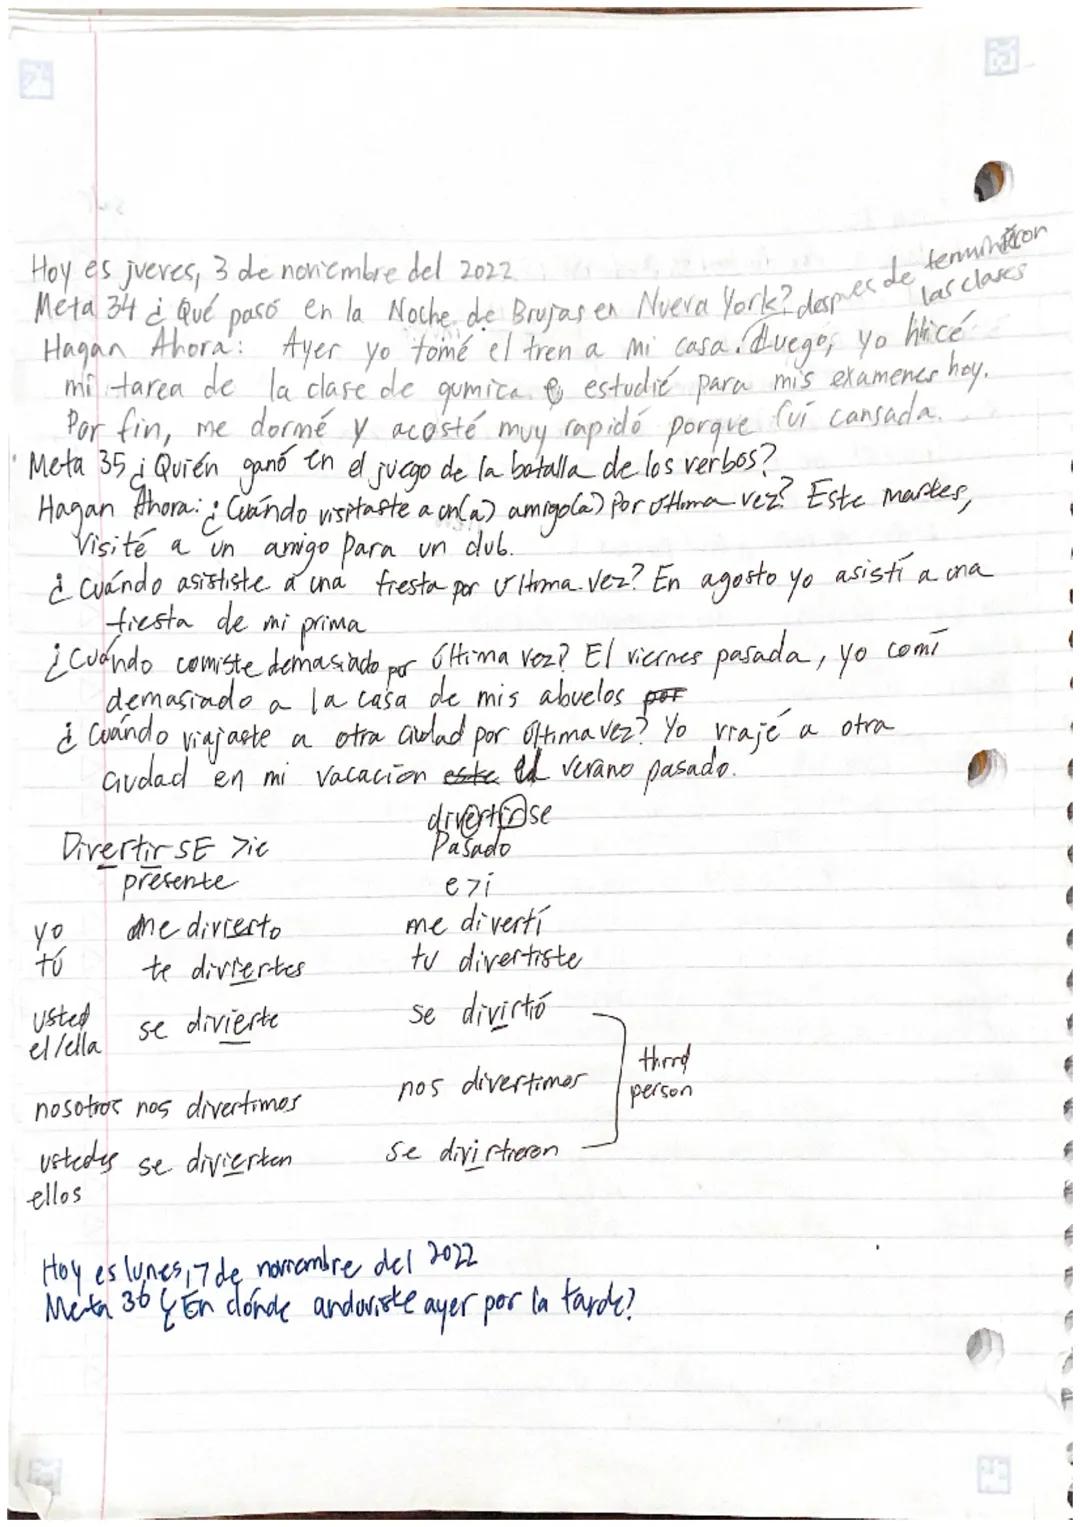 Hoy es jueves, 3 de noviembre del 2022
Meta 34 ¿Qué pasó en la Noche de Brujas en Nueva York? despues de terminaron
las clases
Hagan Ahora: Ayer yo tomé el tren a mi casa. Luego, yo hicé
mi tarea de la clase de qumica e estudié para mis examenes hoy.
Por fin, me dormé y acosté muy rapidó porque fuí cansada.
Meta 35 ¿Quién ganó en el juego de la batalla de los verbos?
Hagan Ahora: ¿Cuándo visitaste a un(a) amigo(a) por última vez? Este martes,
Visité a un amigo para un club.
¿Cuándo asististe a una fiesta por última vez? En agosto yo asistí a una
fiesta de mi prima
¿Cuándo comiste demasiado por última vez? El viernes pasada, yo comí
demasiado a la casa de mis abuelos por
¿Cuándo viajaste a otra ciudad por última vez? Yo viajé a otra
ciudad en mi vacacion este el verano pasado.
divertirse
Divertir SE >ie Pasado
presente e>i
yo me divierto me divertí
tú te diviertes tu divertiste
usted
el/ella se divierte se divirtió
third
person
nosotros nos divertimos nos divertimos
ustedes se divierten se divirtieron
ellos
Hoy es lunes, 7 de noviembre del 2022
Meta 36 ¿En dónde anduviste ayer por la tarde?